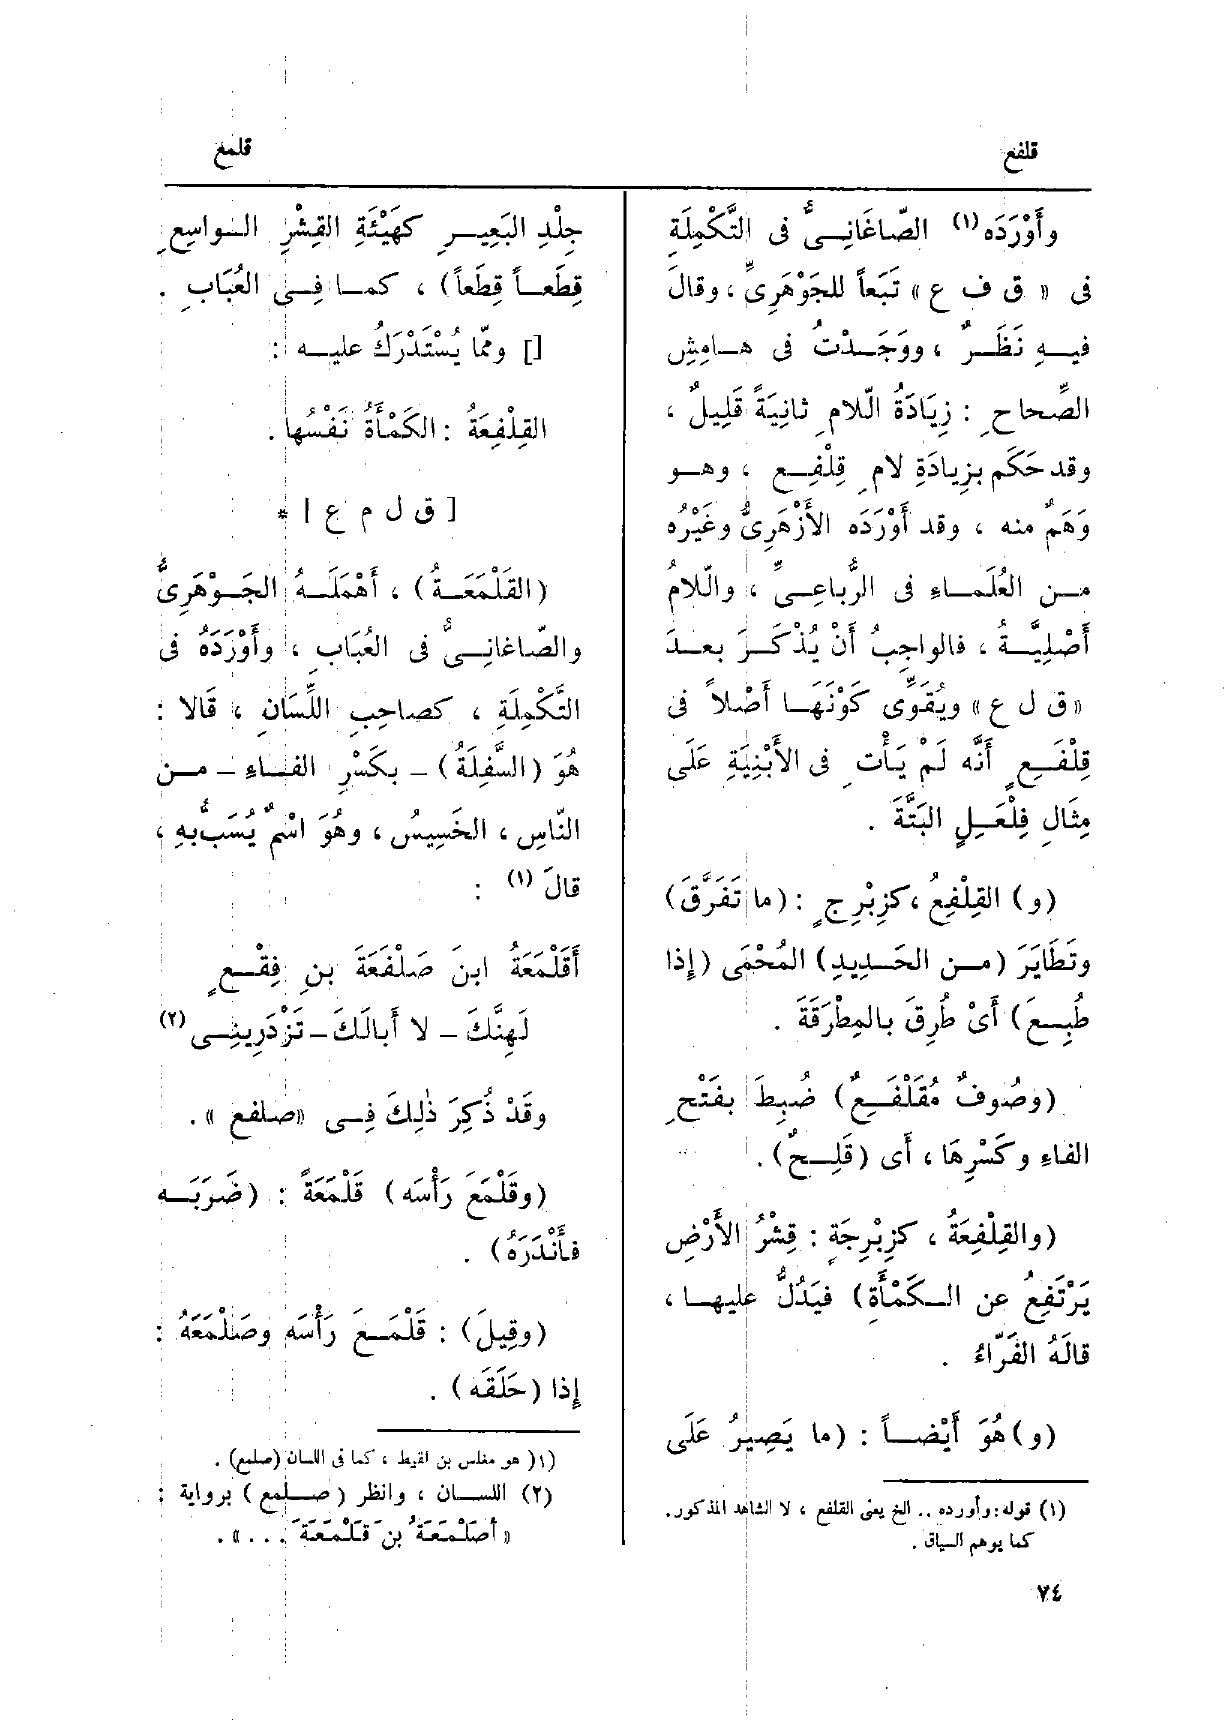 قلفع
قلمع
وأَوْرَدَه (١) الصّاغَانِىُّ فى التَّكْمِلَةِ
فى « ق ف ع » تَبَعاً للجَوْهَرِىِّ ، وقالَ
فيهِ نَظَرٌ ، ووَجَدْتُ فى هامِشِ
الصِّحاحِ : زِيَادَةُ الّلامِ ثانِيَةً قَلِيلٌ ،
وقد حَكَم بزِيادَةِ لامِ قِلْفِع ، وهو
وَهَمٌ منه ، وقد أَوْرَدَه الأَزْهَرِىُّ وغَيْرُه
من العُلَماءِ فى الرُّباعِىِّ ، والّلامُ
أَصْلِيَّةٌ ، فالواجِبُ أَنْ يُذْكَرَ بعدَ
« ق ل ع » ويُقَوِّى كَوْنَهَا أَصْلاً فى
قِلْفَعٍ أَنَّه لَمْ يَأْتِ فى الأَبْنِيَةِ عَلَى
مِثَالِ فِلْعَلٍ البَتَّةَ .
(و) القِلْفِعُ ، كزِبْرِجٍ : (ما تَفَرَّقَ)
وتَطَايَرَ (من الحَدِيدِ) المُحْمَى (إذا
طُبِعَ) أَىْ طُرِقَ بالمِطْرَقَةَ .
(وصُوفٌ مُقَلْفَعٌ) ضُبِطَ بفَتْحِ
الفاءِ وكَسْرِهَا ، أَى (قَلِحٌ) .
(والقِلْفِعَةُ ، كزِبْرِجَةٍ : قِشْرُ الأَرْضِ
يَرْتَفِعُ عن الكَمْأَةِ) فيَدُلُّ عليها ،
قالَهُ الفَرّاءُ .
(و) هُوَ أَيْضاً : (ما يَصِيرُ عَلَى
(١) قوله : وأورده .. الخ يعنى القلفع ، لا الشاهد المذكور .
كما يوهم السياق .
٧٤
جِلْدِ البَعِيرِ كهَيْئَةِ القِشْرِ الواسِعِ
قِطَعاً قِطَعاً) ، كما فِى العُبَابِ .
[] وممّا يُسْتَدْرَكُ عليه :
القِلْفِعَةُ : الكَمْأَةُ نَفْسُها .
[ ق ل م ع ] *
(القَلْمَعَةُ) ، أَهْمَلَهُ الجَوْهَرِىُّ
والصّاغانِىُّ فى العُبَابِ ، وأَوْرَدَهُ فى
التَّكْمِلَةِ ، كصاحِبِ اللِّسَانِ ، قالا :
هُوَ (السَّفِلَةُ) - بكَسْرِ الفاءِ - من
النّاسِ ، الخَسِيسُ ، وهُوَ اسْمٌ يُسَبُّ بهِ ،
قالَ (١) :
أَقَلْمَعَةُ ابنَ صَلْفَعَةَ بنِ فِقْعٍ
لَهِنَّكَ - لا أَبالَكَ - تَزْدَرِينِى (٢)
وقَدْ ذُكِرَ ذٰلِكَ فِى «صلفع » .
(وقَلْمَعَ رَأْسَه) قَلْمَعَةً : (ضَرَبَه
فأَنْدَرَهُ) .
(وقِيلَ) : قَلْمَعَ رَأْسَه وصَلْمَعَهُ :
إذا (حَلَقَه) .
(١) هو مغلس بن لقيط ، كما فى اللسان (صلمع) .
(٢) اللسان ، وانظر (صلمع) برواية :
« أصَلْمَعَةُ بنَ قَلْمَعَةَ ... » .